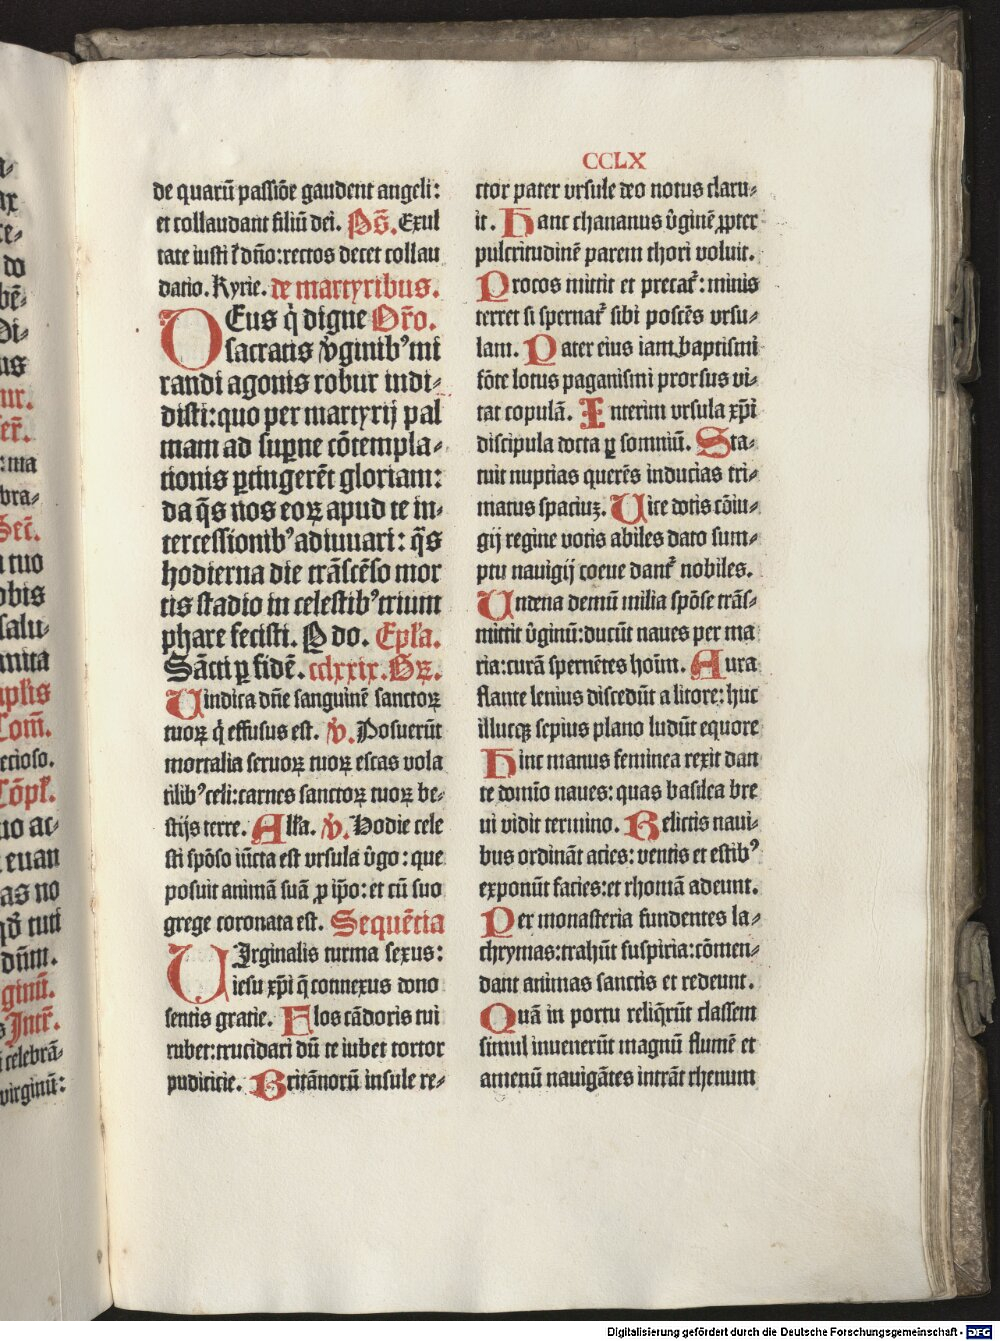 CCLX
de quarū passiōe gaudent angeli:
et collaudant filiū dei. Ps̄. Exul
tate iusti ī dño: rectos decet collau
datio. Kyrie. de martyribus.
DEus q̇ digne Or̄o.
sacratis v̄ginib᾽ mi
randi agonis robur indi⸗
disti: quo per martyrij pal
mam ad supne cōtempla⸗
tionis ꝑtingerēt gloriam:
da q̄s nos eoꝝ apud te in⸗
tercessionib᾽ adiuuari: q̄s
hodierna die trāscēso mor
tis stadio in celestib᾽ trium
phare fecisti. P do. Epl̄a.
Sācti ꝑ fidē. cclxxix. Gꝝ.
Uindica dñe sanguinē sanctoꝝ
tuoꝝ q̇ effusus est. v̄. Posuerūt
mortalia seruoꝝ tuoꝝ escas vola
tilib᾽ celi: carnes sanctoꝝ tuoꝝ be⸗
stijs terre. Alla. v̄. Hodie cele
sti spōso iūcta est vrsula v̄go: que
posuit animā suā ꝓ ip̄o: et cū suo
grege coronata est. Sequētia
UIrginalis turma sexus:
iesu xp̄i q̄ connexus dono
sentis gratie. Flos cādoris tui
rubet: trucidari dū te iubet tortor
pudicicie. Britānorū insule re⸗
ctor pater vrsule deo notus claru⸗
it. Hanc chananus v̄ginē ꝓpter
pulcritudinē parem thori voluit.
Procos mittit et precat᷑: minis
terret si spernat᷑ sibi poscēs vrsu⸗
lam. Pater eius iam baptismi
fōte lotus paganismi prorsus vi⸗
tat copulā. Interim vrsula xp̄i
discipula docta ꝑ somniū. Sta⸗
tuit nuptias querēs inducias tri⸗
matus spaciuꝫ. Uice dotis cōiu⸗
gij regine votis abiles dato sum⸗
ptu nauigij coeue dant᷑ nobiles.
Undena demū milia spōse trās⸗
mittit v̄ginū: ducūt naues per ma
ria: curā spernētes hoīm. Aura
flante lenius discedūt a litore: huc
illucqꝫ sepius plano ludūt equore
Hinc manus feminea rexit dan
te domīo naues: quas basilea bre
ui vidit termino. Relictis naui⸗
bus ordināt acies: ventis et estib᾽
exponūt facies: et rhomā adeunt.
Per monasteria fundentes la⸗
chrymas: trahūt suspiria: cōmen⸗
dant animas sanctis et redeunt.
Quā in portu reliq̄rūt classem
simul inuenerūt magnū flumē et
amenū nauigātes intrāt rhenum
Digitalisierung gefördert durch die Deutsche Forschungsgemeinschaft - DFG